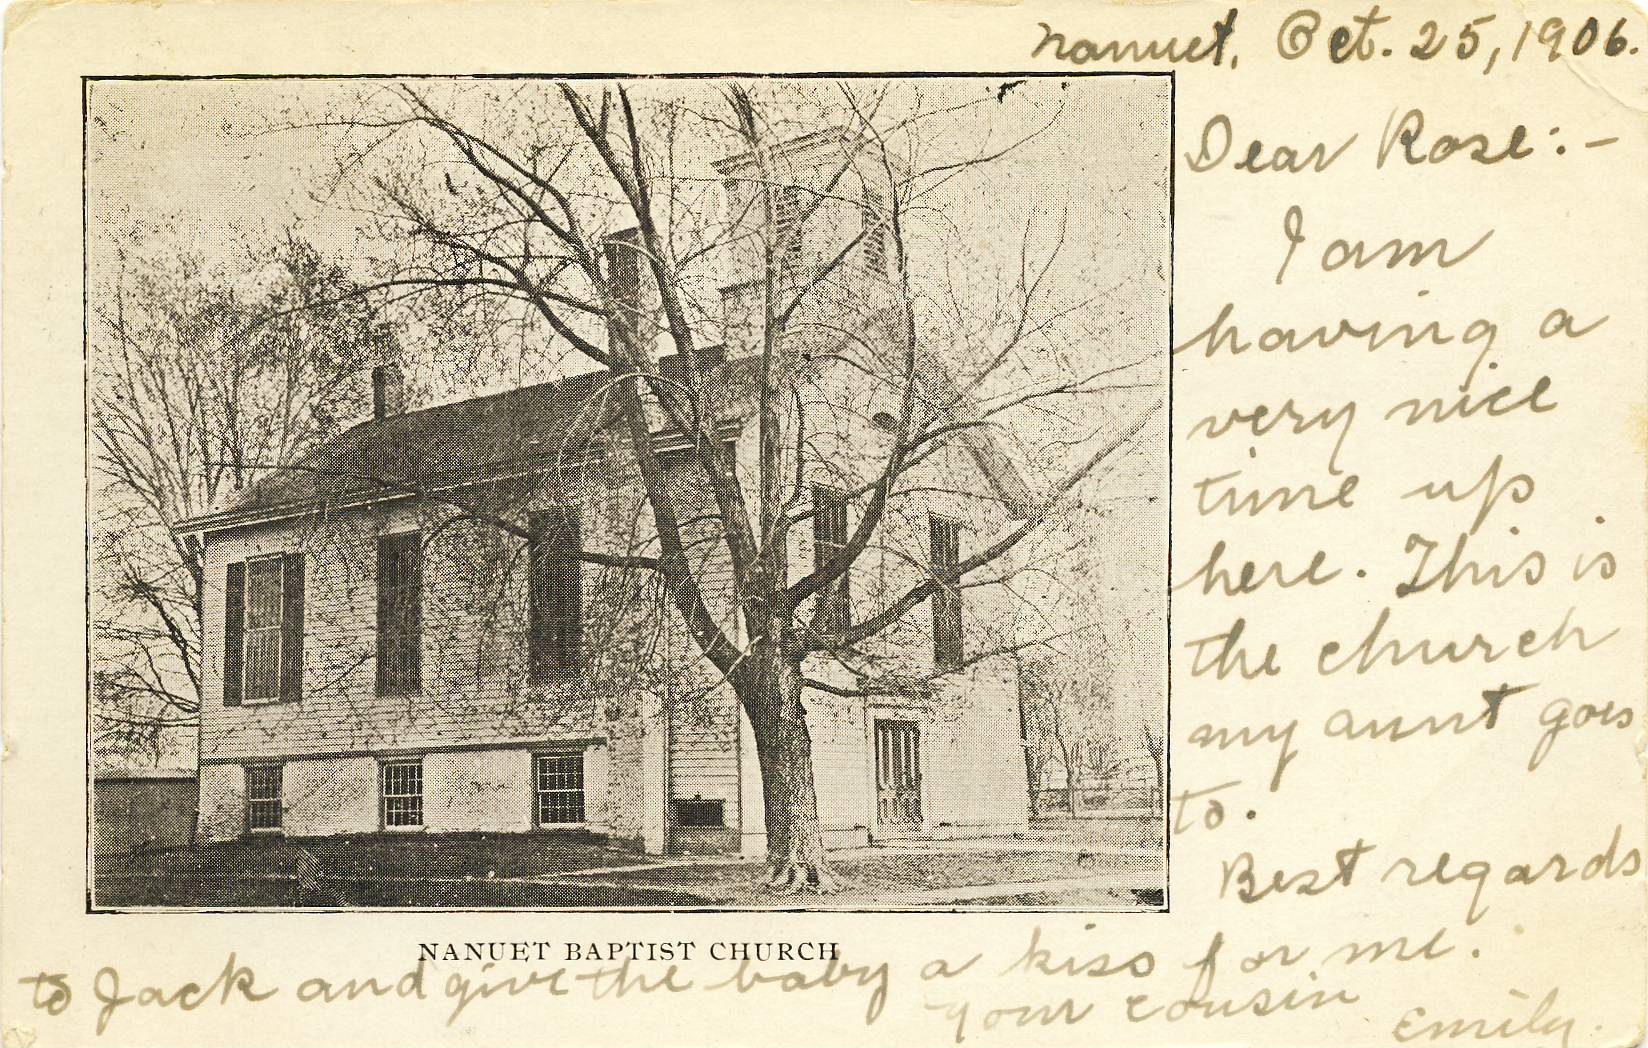 Nanuet, Oct. 25, 1906.
Dear Rose:-
I am
having a
very nice
time up
here. This is
the church
my aunt goes
to.
Best regards
NANUET BAPTIST CHURCH
to Jack and give the baby a kiss for me.
your cousin
Emily.